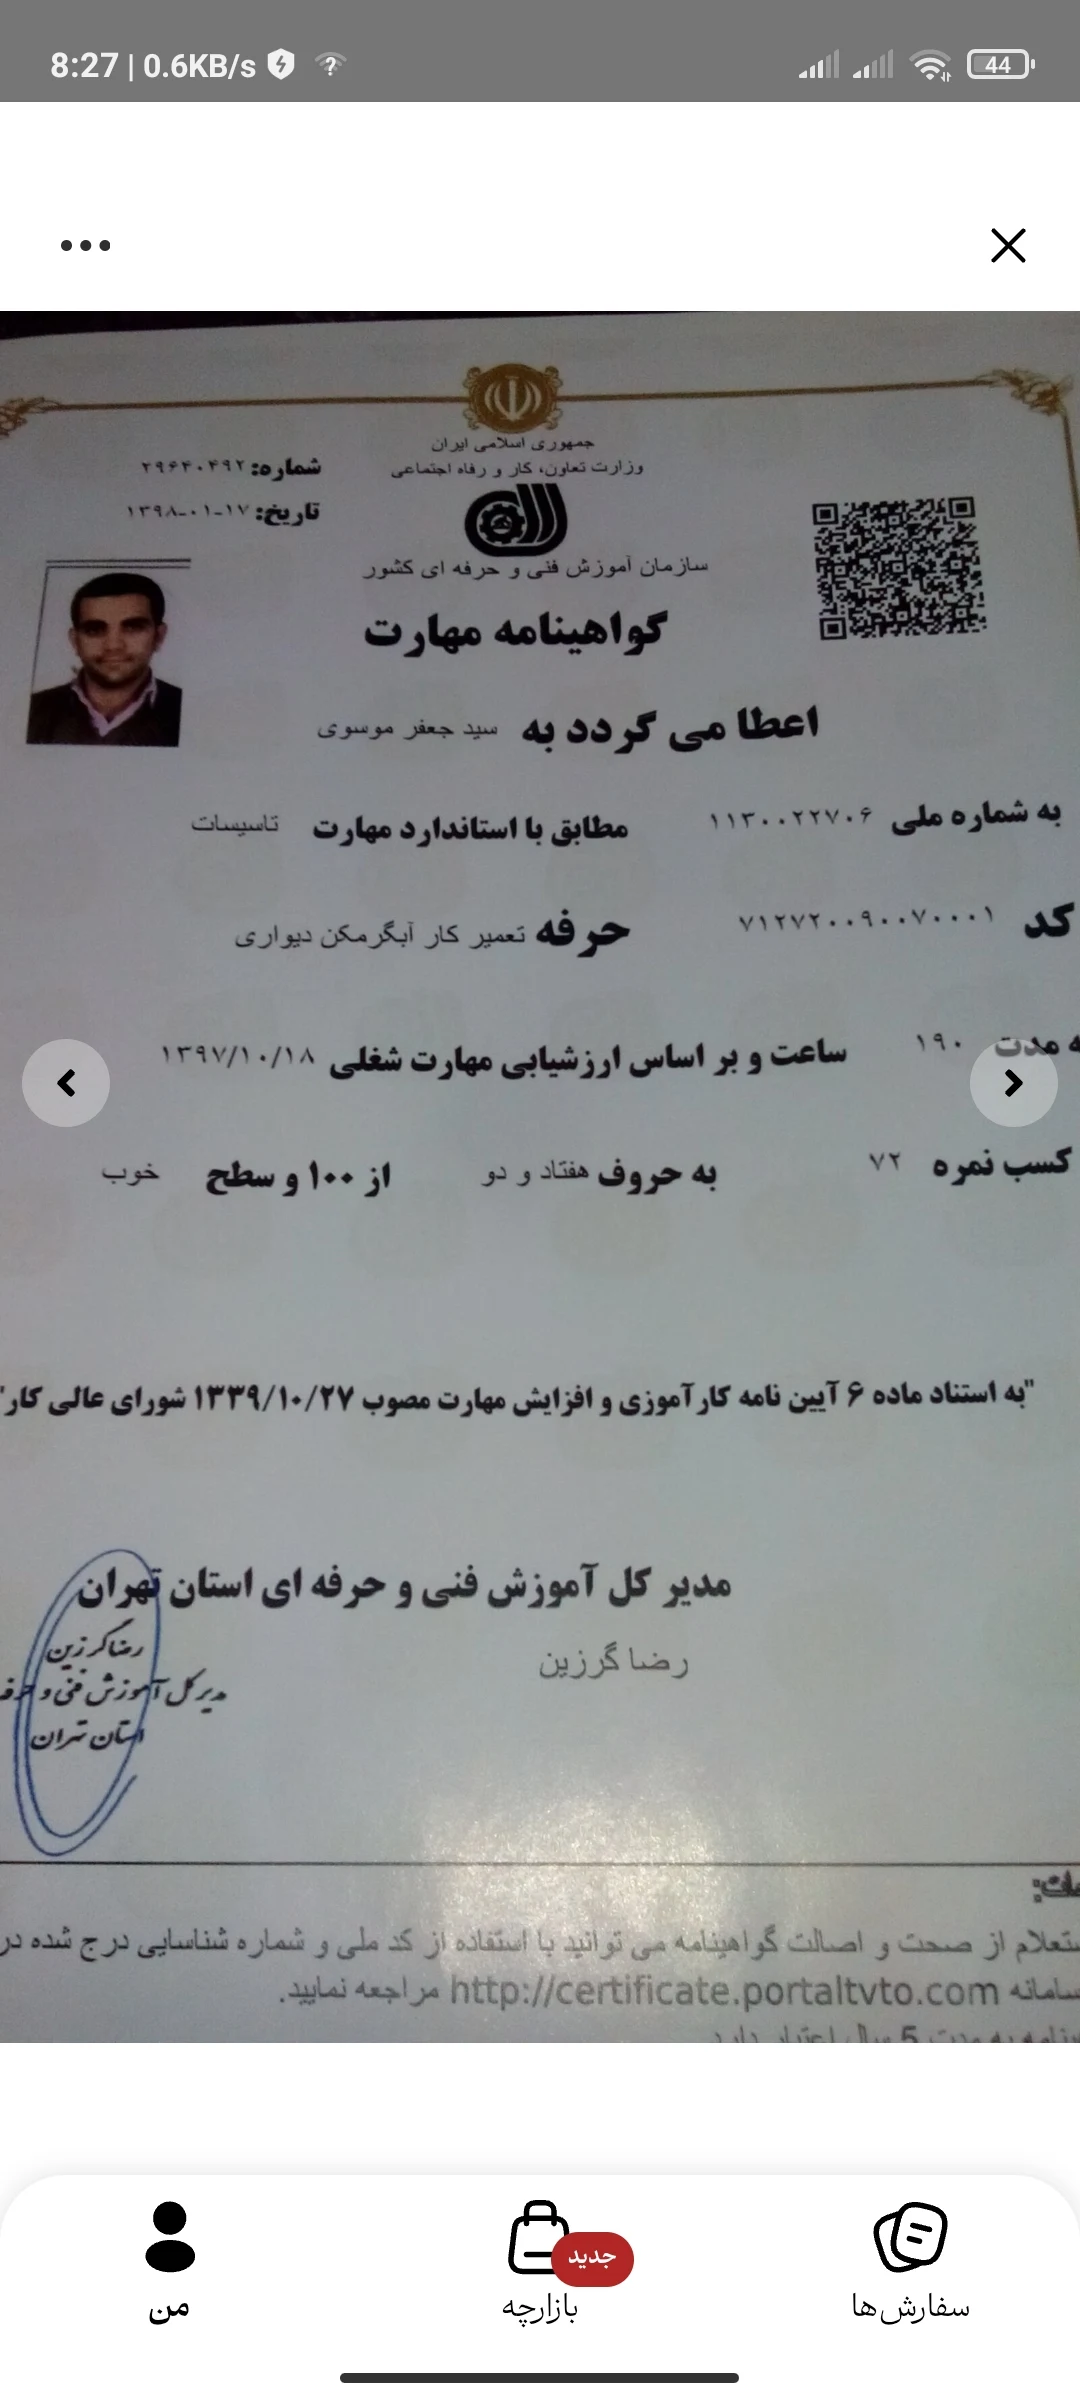 8:27 | 0.6KB/s
44
جمهوری اسلامی ایران
وزارت تعاون، کار و رفاه اجتماعی
شماره: ۲۹۶۴۰۴۹۲
تاریخ: ۱۳۹۸-۰۱-۱۷
سازمان آموزش فنی و حرفه ای کشور
گواهینامه مهارت
اعطا می گردد به سید جعفر موسوی
به شماره ملی ۱۱۳۰۰۲۲۷۰۶ مطابق با استاندارد مهارت تاسیسات
کد ۷۱۲۷۲۰۰۹۰۰۷۰۰۰۱ حرفه تعمیر کار آبگرمکن دیواری
ه مدت ۱۹۰ ساعت و بر اساس ارزشیابی مهارت شغلی ۱۳۹۷/۱۰/۱۸
کسب نمره ۷۲ به حروف هفتاد و دو از ۱۰۰ و سطح خوب
"به استناد ماده ۶ آیین نامه کارآموزی و افزایش مهارت مصوب ۱۳۳۹/۱۰/۲۷ شورای عالی کار"
مدیر کل آموزش فنی و حرفه ای استان تهران
رضا گرزین
رضا گرزین
مدیر کل آموزش فنی و حرفه
استان تهران
ستعلام از صحت و اصالت گواهینامه می توانید با استفاده از کد ملی و شماره شناسایی درج شده در
سامانه http://certificate.portaltvto.com مراجعه نمایید.
به مدت 5 سال اعتبار دارد
سفارش‌ها
بازارچه
جدید
من